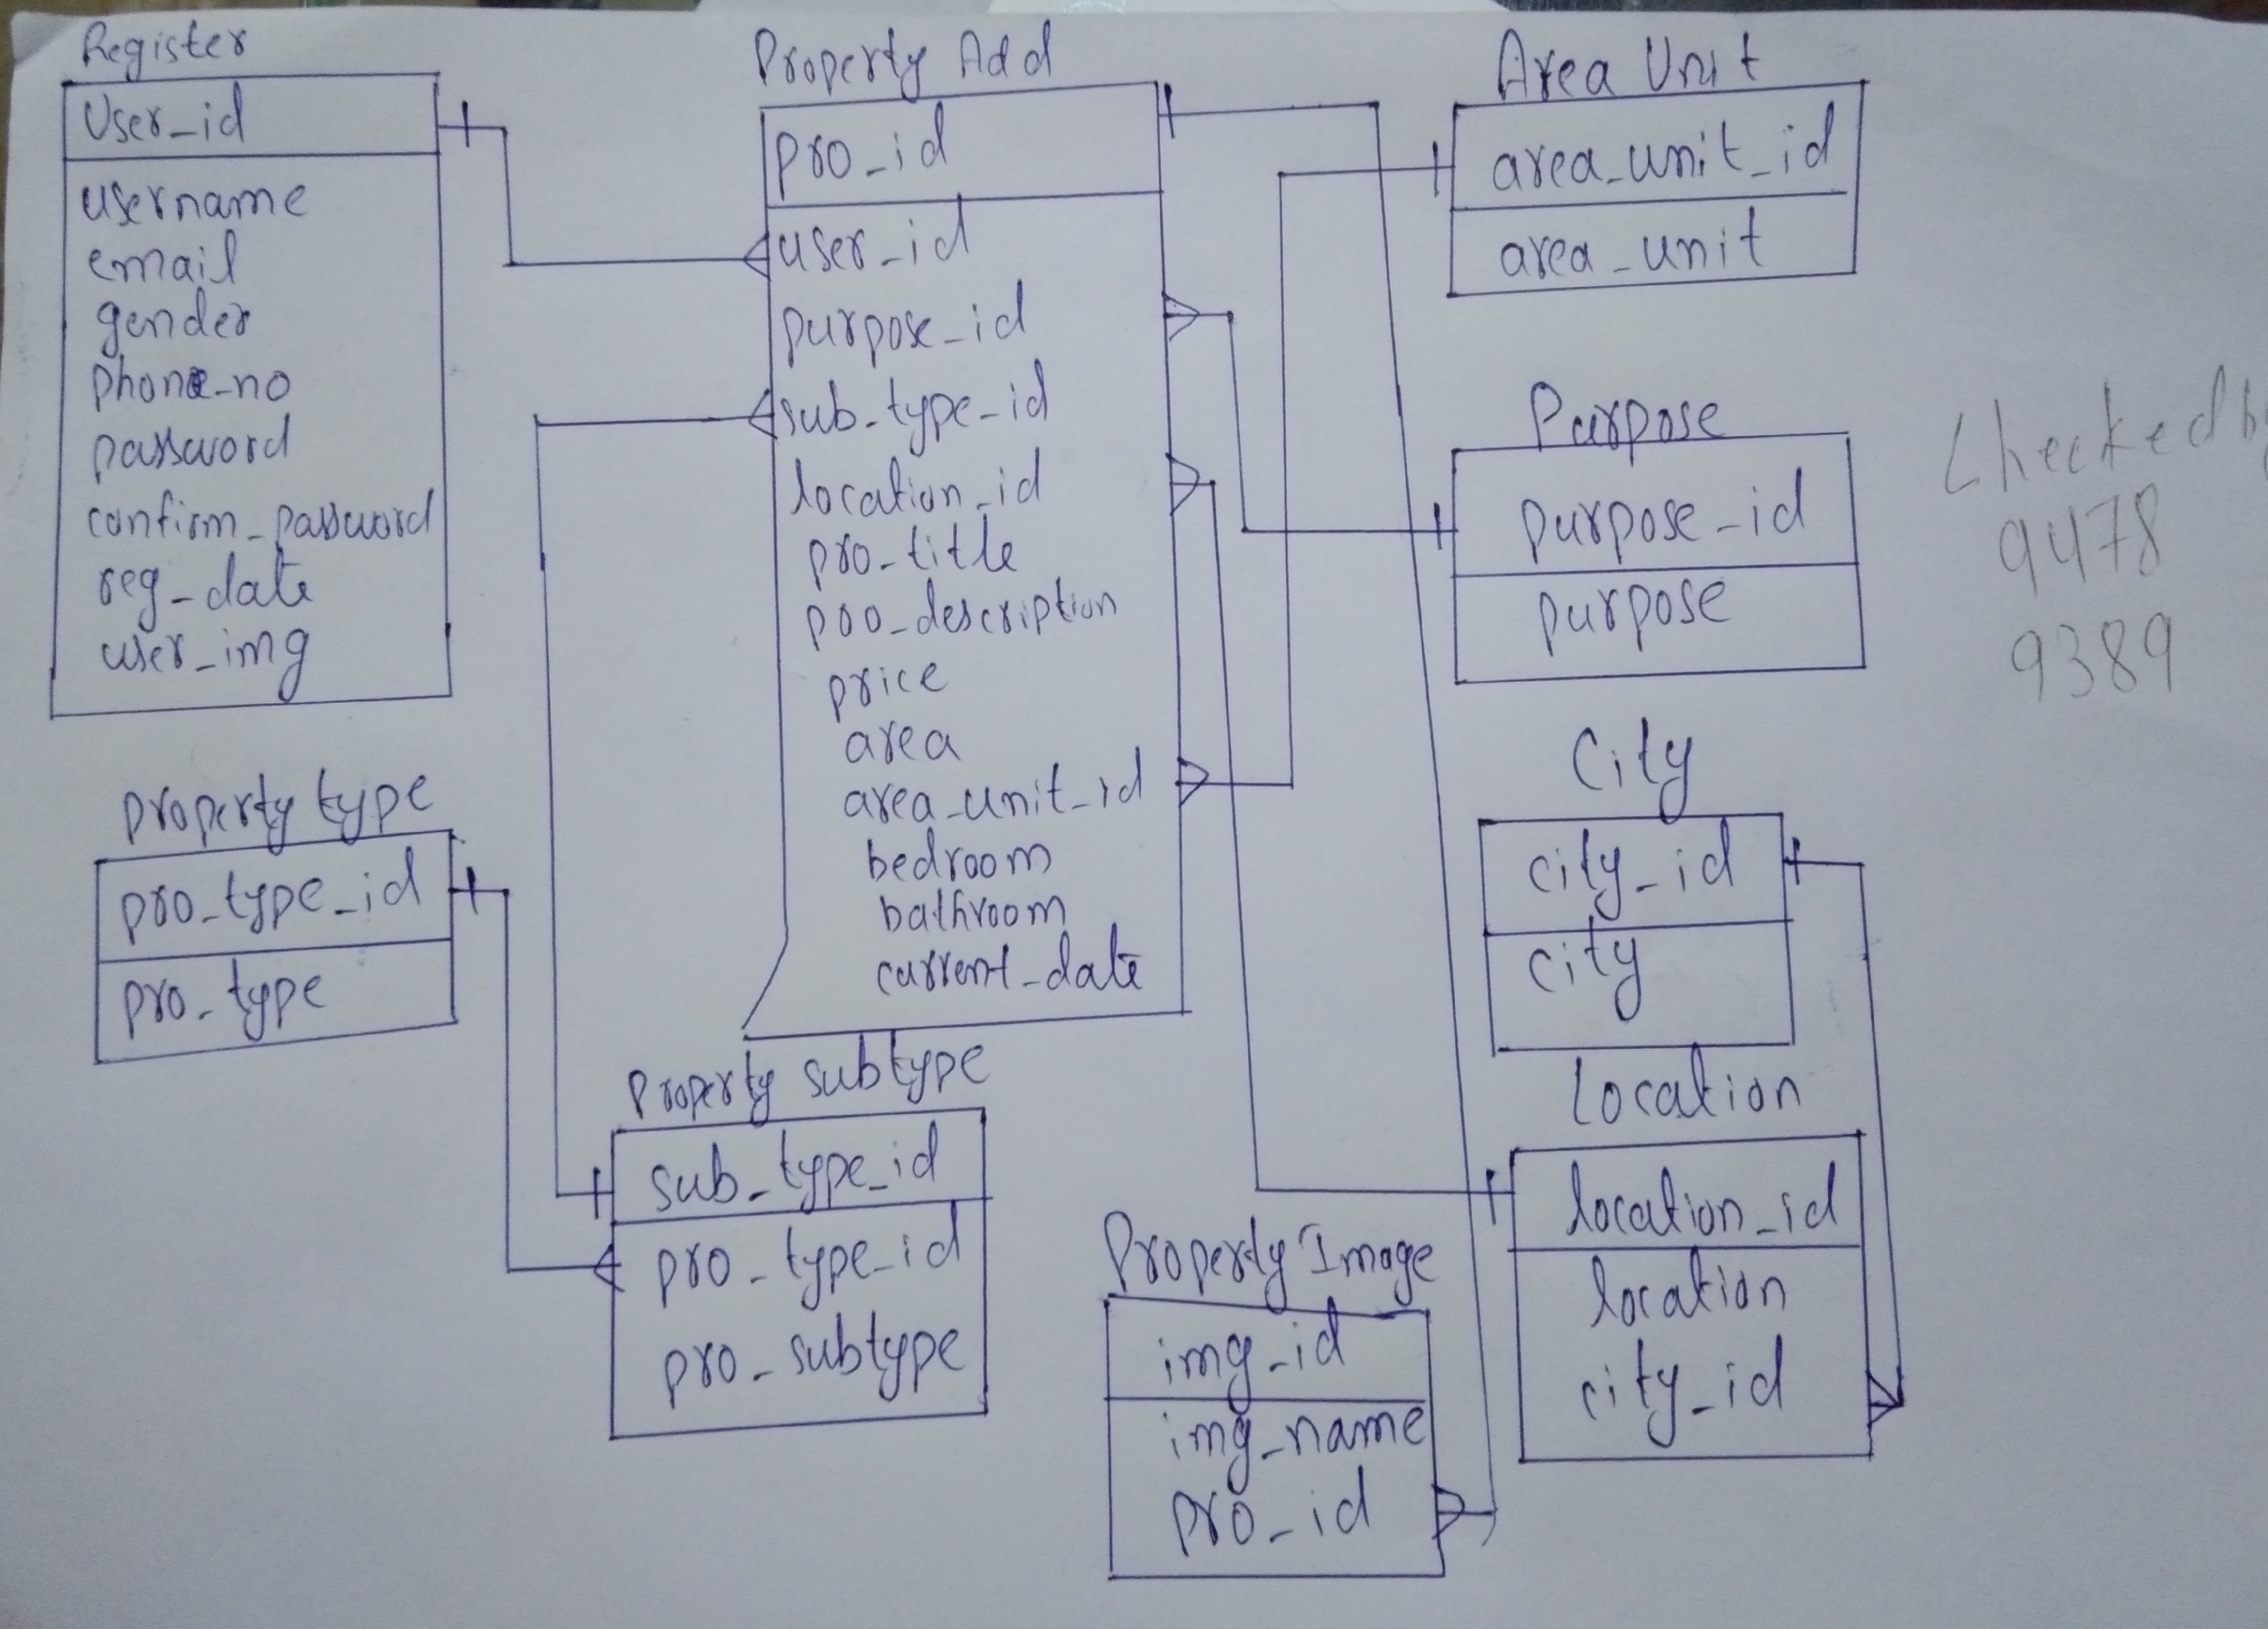 Register
User_id
username
email
gender
phone_no
password
confirm_password
reg_date
user_img
Property Add
pro_id
user_id
purpose_id
sub_type_id
location_id
pro_title
pro_description
price
area
area_unit_id
bedroom
bathroom
current_date
Area Unit
area_unit_id
area_unit
Purpose
purpose_id
purpose
Checked by
9478
9389
City
city_id
city
Property type
pro_type_id
pro_type
Property subtype
sub_type_id
pro_type_id
pro_subtype
Property Image
img_id
img_name
pro_id
Location
location_id
location
city_id